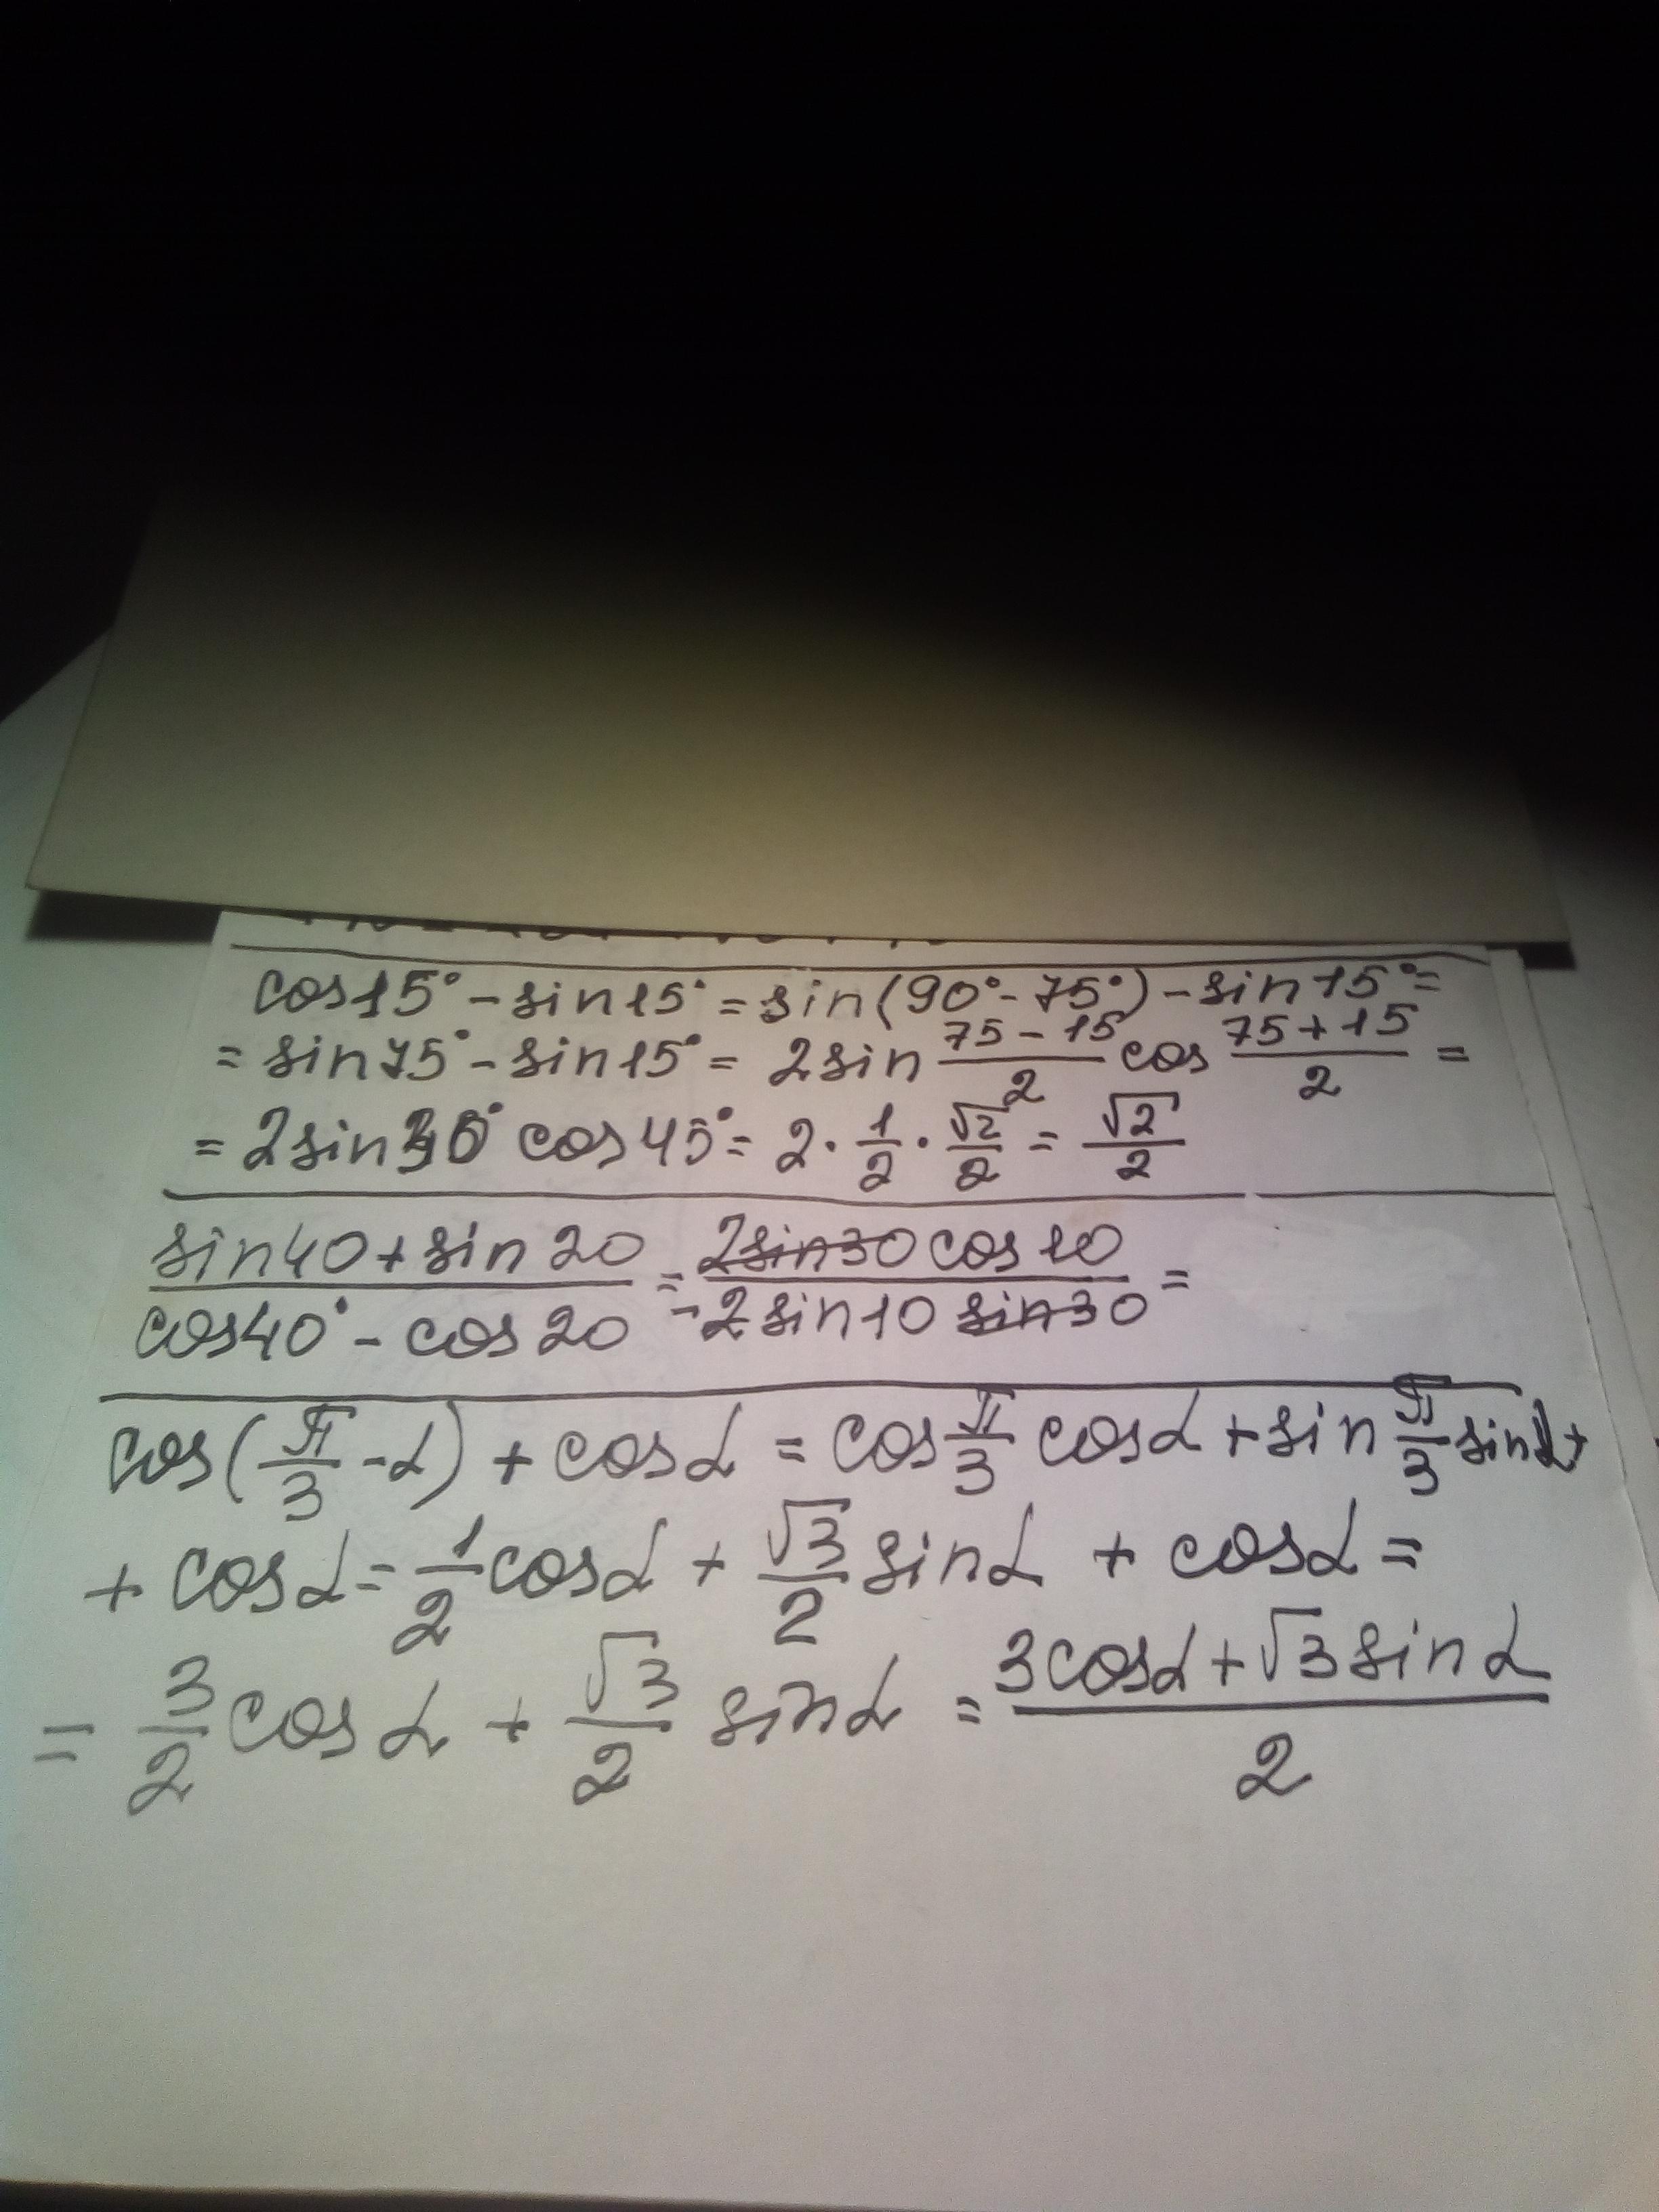 cos15° - sin15° = sin(90° - 75°) - sin15° =
= sin75° - sin15° = 2sin (75 - 15)/2 cos (75 + 15)/2 =
= 2sin30° cos45° = 2 · 1/2 · √2/2 = √2/2
(sin40 + sin20)/(cos40° - cos20) = (2sin30 cos10)/(-2sin10 sin30) =
cos(π/3 - α) + cosα = cos π/3 cosα + sin π/3 sinα +
+ cosα = 1/2 cosα + √3/2 sinα + cosα =
= 3/2 cosα + √3/2 sinα = (3cosα + √3 sinα)/2